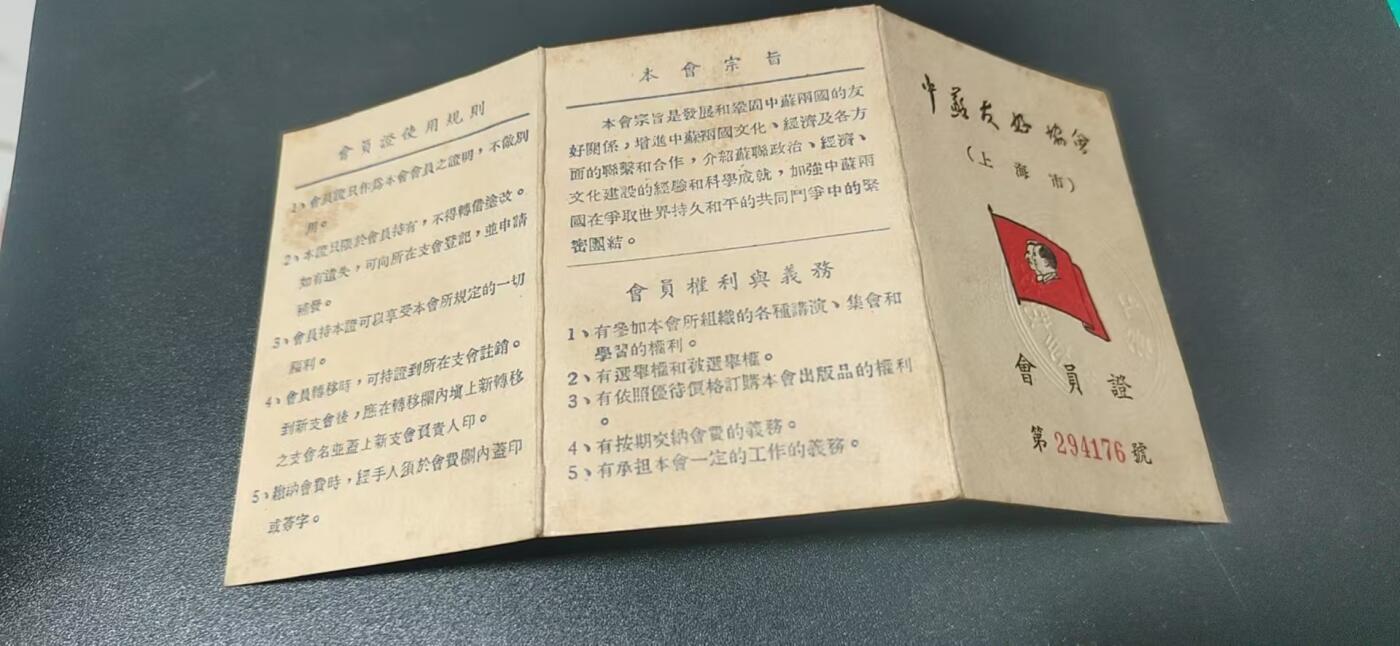 會員證使用規則
1、會員證只作爲本會會員之證明，不做別
用。
2、本證只限於會員持有，不得轉借塗改。
如有遺失，可向所在支會登記，並申請
補發。
3、會員持本證可以享受本會所規定的一切
福利。
4、會員轉移時，可持證到所在支會註銷。
到新支會後，應在轉移欄內塡上新轉移
之支會名並蓋上新支會負責人印。
5、繳納會費時，經手人須於會費欄內蓋印
或簽字。
本會宗旨
本會宗旨是發展和鞏固中蘇兩國的友
好關係，增進中蘇兩國文化、經濟及各方
面的聯繫和合作，介紹蘇聯政治、經濟、
文化建設的經驗和科學成就，加強中蘇兩
國在爭取世界持久和平的共同鬥爭中的緊
密團結。
會員權利與義務
1、有參加本會所組織的各種講演、集會和
學習的權利。
2、有選舉權和被選舉權。
3、有依照優待價格訂購本會出版品的權利
。
4、有按期交納會費的義務。
5、有承担本會一定的工作的義務。
中蘇友好協會
(上海市)
會員證
第294176號